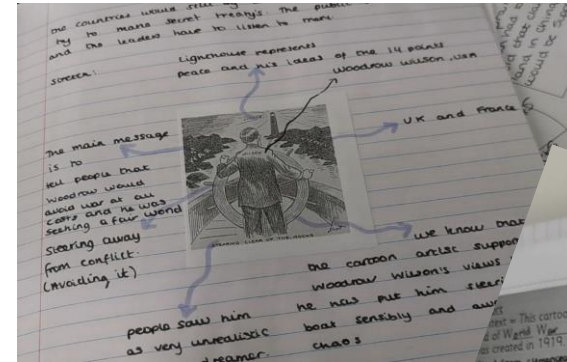 the countries would still
try to make secret treaty's. The public
and the leaders have to listen to them.
source:
Lighthouse represents
peace and his ideas of the 14 points
Woodrow Wilson, USA
UK and France
The main message
is to
tell people that
woodrow would
avoid war at all
costs and he was
seeking a fair world
Steering away
from conflict.
(Avoiding it)
STEERING CLEAR OF THE ROCKS
we know that
the cartoon artist suppor
Woodrow Wilson's views
he has put him steeri
boat sensibly and aw
chaos
people saw him
as very unrealistic
dreamer.
text = This cartoo
d of World War
s created in 1919